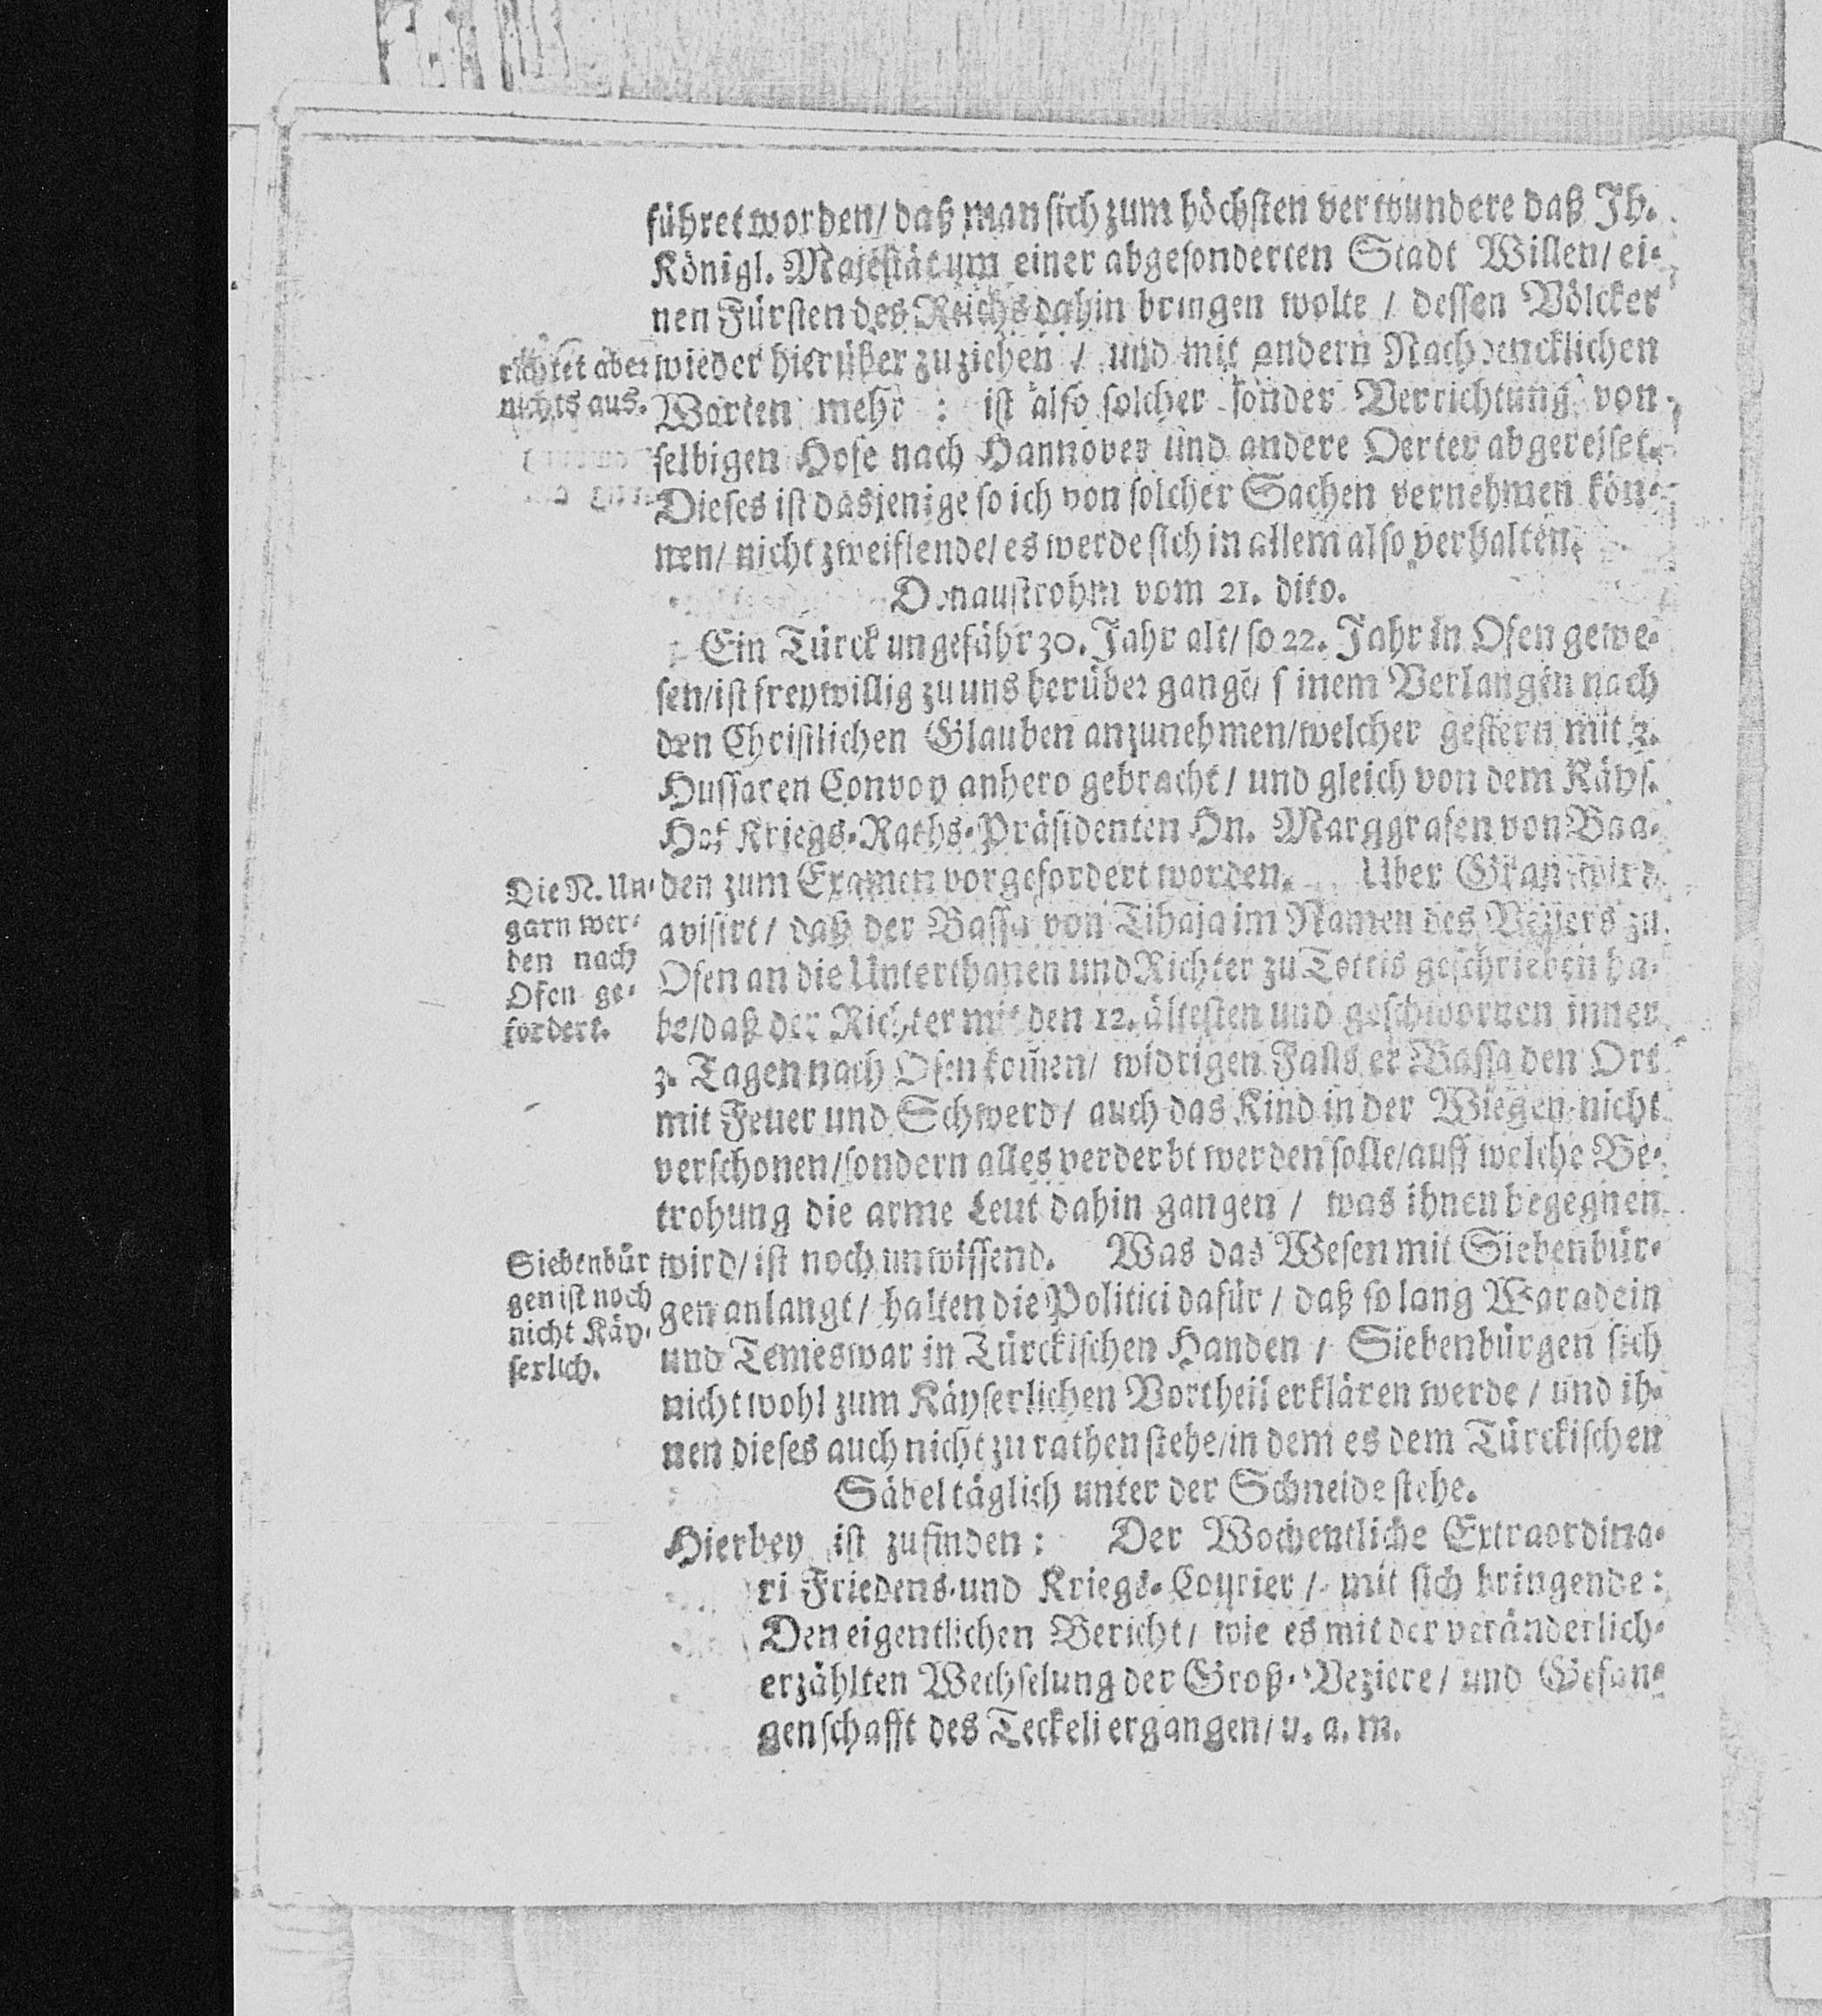 führet worden/ daß man sich zum höchsten verwundere daß Ih.
Königl. Majestät um einer abgesonderten Stadt Willen/ ei-
nen Fürsten des Reichs dahin bringen wolte / dessen Völcker
richtet aber
nichts aus.
wieder hierüber zu ziehen / und mit andern Nachdencklichen
Worten mehr : ist also solcher sonder Verrichtung von
selbigen Hofe nach Hannover und andere Oerter abgereiset.
Dieses ist dasjenige so ich von solcher Sachen vernehmen kön-
nen/ nicht zweiflende/ es werde sich in allem also verhalten.
Donaustrohm vom 21. dito.
Ein Türck ungefähr 30. Jahr alt/ so 22. Jahr in Ofen gewe-
sen/ist freywillig zu uns herüber gangē/ seinem Verlangen nach
den Christlichen Glauben anzunehmen/welcher gestern mit
Hussaren Convoy anhero gebracht / und gleich von dem Käys.
Hof Kriegs-Raths-Präsidenten Hn. Marggrafen von Baa-
Die N. Un-
garn wer-
den nach
Ofen ge-
fordert.
den zum Examen vorgefordert worden. Uber Gran wird
avisirt / daß der Bassa von Tihaja im Namen des Veziers zu
Ofen an die Unterthanen und Richter zu Tottis geschrieben ha-
be/daß der Richter mit den 12. ältesten und geschwornen inner
3. Tagen nach Ofen kom̃en/ widrigen Falls er Bassa den Ort
mit Feuer und Schwerd / auch das Kind in der Wiegen nicht
verschonen/sondern alles verderbt werden solle/auff welche Be-
trohung die arme Leut dahin gangen / was ihnen begegnen
Siebenbür
gen ist noch
nicht Käy-
serlich.
wird/ ist noch unwissend. Was das Wesen mit Siebenbür-
gen anlangt / halten die Politici dafür / daß so lang Waradein
und Temeswar in Türckischen Handen / Siebenbürgen sich
nicht wohl zum Käyserlichen Vortheil erklären werde / und ih-
nen dieses auch nicht zu rathen stehe/in dem es dem Türckischen
Säbel täglich unter der Schneide stehe.
Hierbey ist zufinden : Der Wochentliche Extraordina-
ri Friedens-und Kriegs-Courier / mit sich bringende :
Den eigentlichen Bericht / wie es mit der veränderlich-
erzählten Wechselung der Groß-Veziere / und Gefan-
genschafft des Teckeli ergangen / u. a. m.